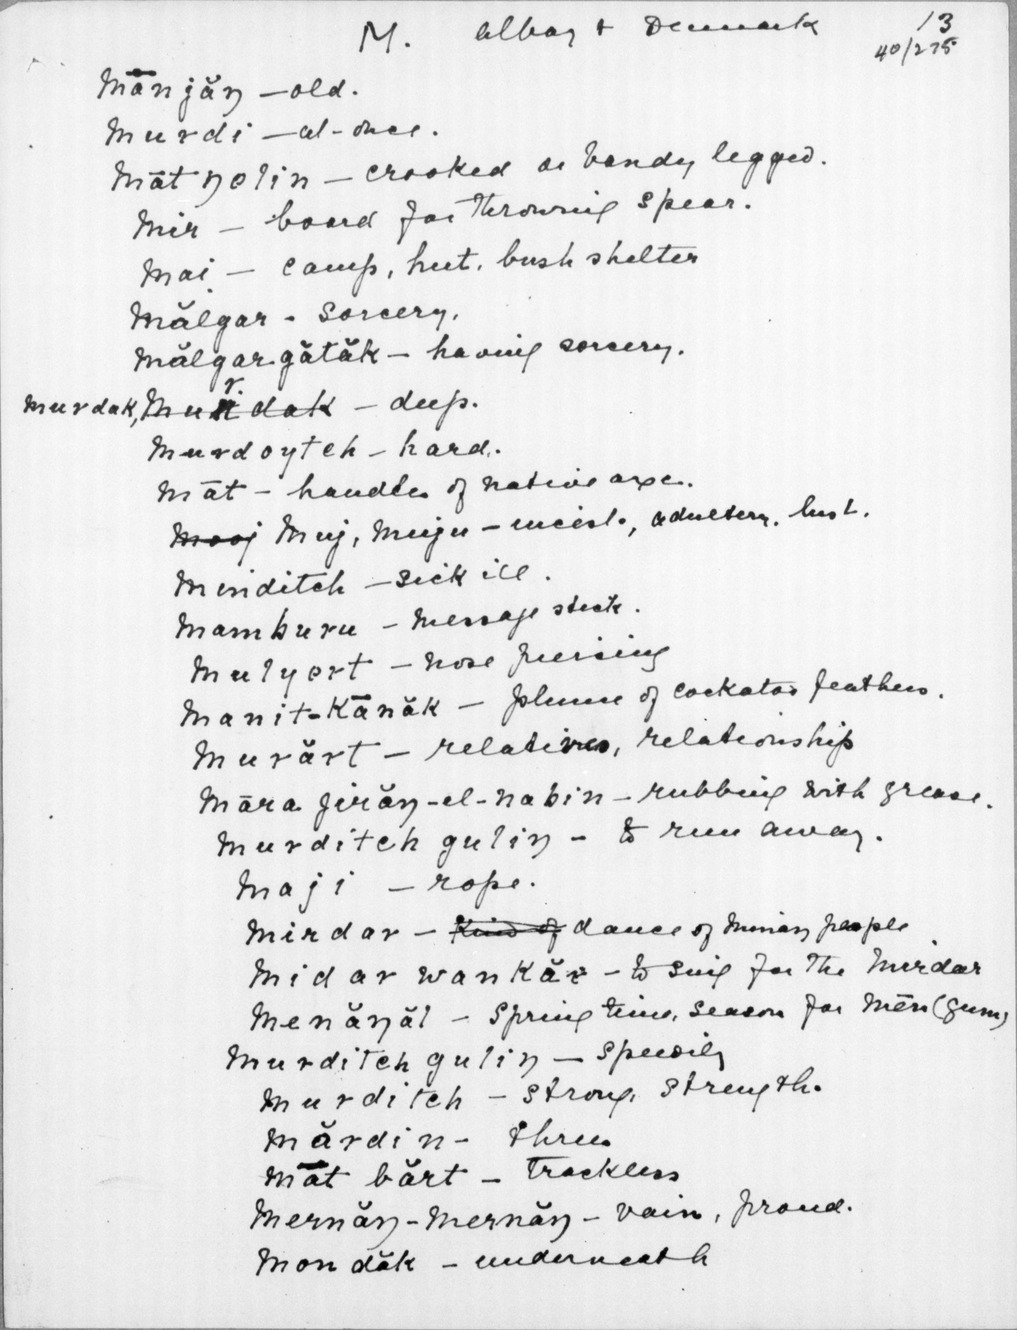 M. Albany + Denmark 13
40/275
Mānjăŋ — old.
Murdi — at-once.
Māt ŋolin — crooked or bandy legged.
Mir — board for throwing spear.
Mai — camp, hut, bush shelter
Mălgar - sorcery.
Mălgar-gătăk — having sorcery.
Murdak, Murdak — deep.
Murdoytch — hard.
Māt — handle of native axe.
Mooj Muj, Muju — incest, adultery, lust.
Minditch — sick ill.
Mamburu — message stick.
Mulyert — nose piercing
Manit-Kānăk — plume of cockatoo feathers.
Murărt — relatives, relationship
Māra jirăŋ-el-nabin — rubbing with grease.
Murditch guliŋ — to run away.
Maji — rope.
Mirdar — Kind of dance of Minaŋ people
Midar wankăr — to sing for the Mirdar
Menăŋăl — Spring time, season for Mēn (gum)
Murditch guliŋ — speedily
Murditch — strong, strength.
Mărdin — three
Māt bărt — Trackless
Mernăŋ-Mernăŋ — vain, proud.
Mon dăk — underneath